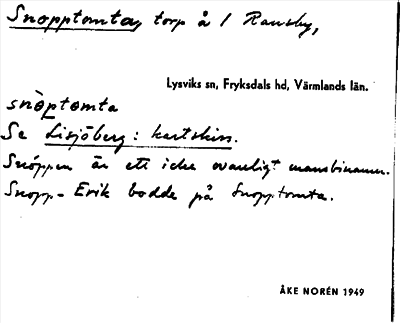 Snopptomta, torp å 1 Ransby,
Lysviks sn, Fryksdals hd, Värmlands län.
snòptomta
Se Lisjöberg: kartskiss.
Snöppen är ett icke ovanligt mansbinamn.
Snopp-Erik bodde på Snopptomta.
ÅKE NORÉN 1949